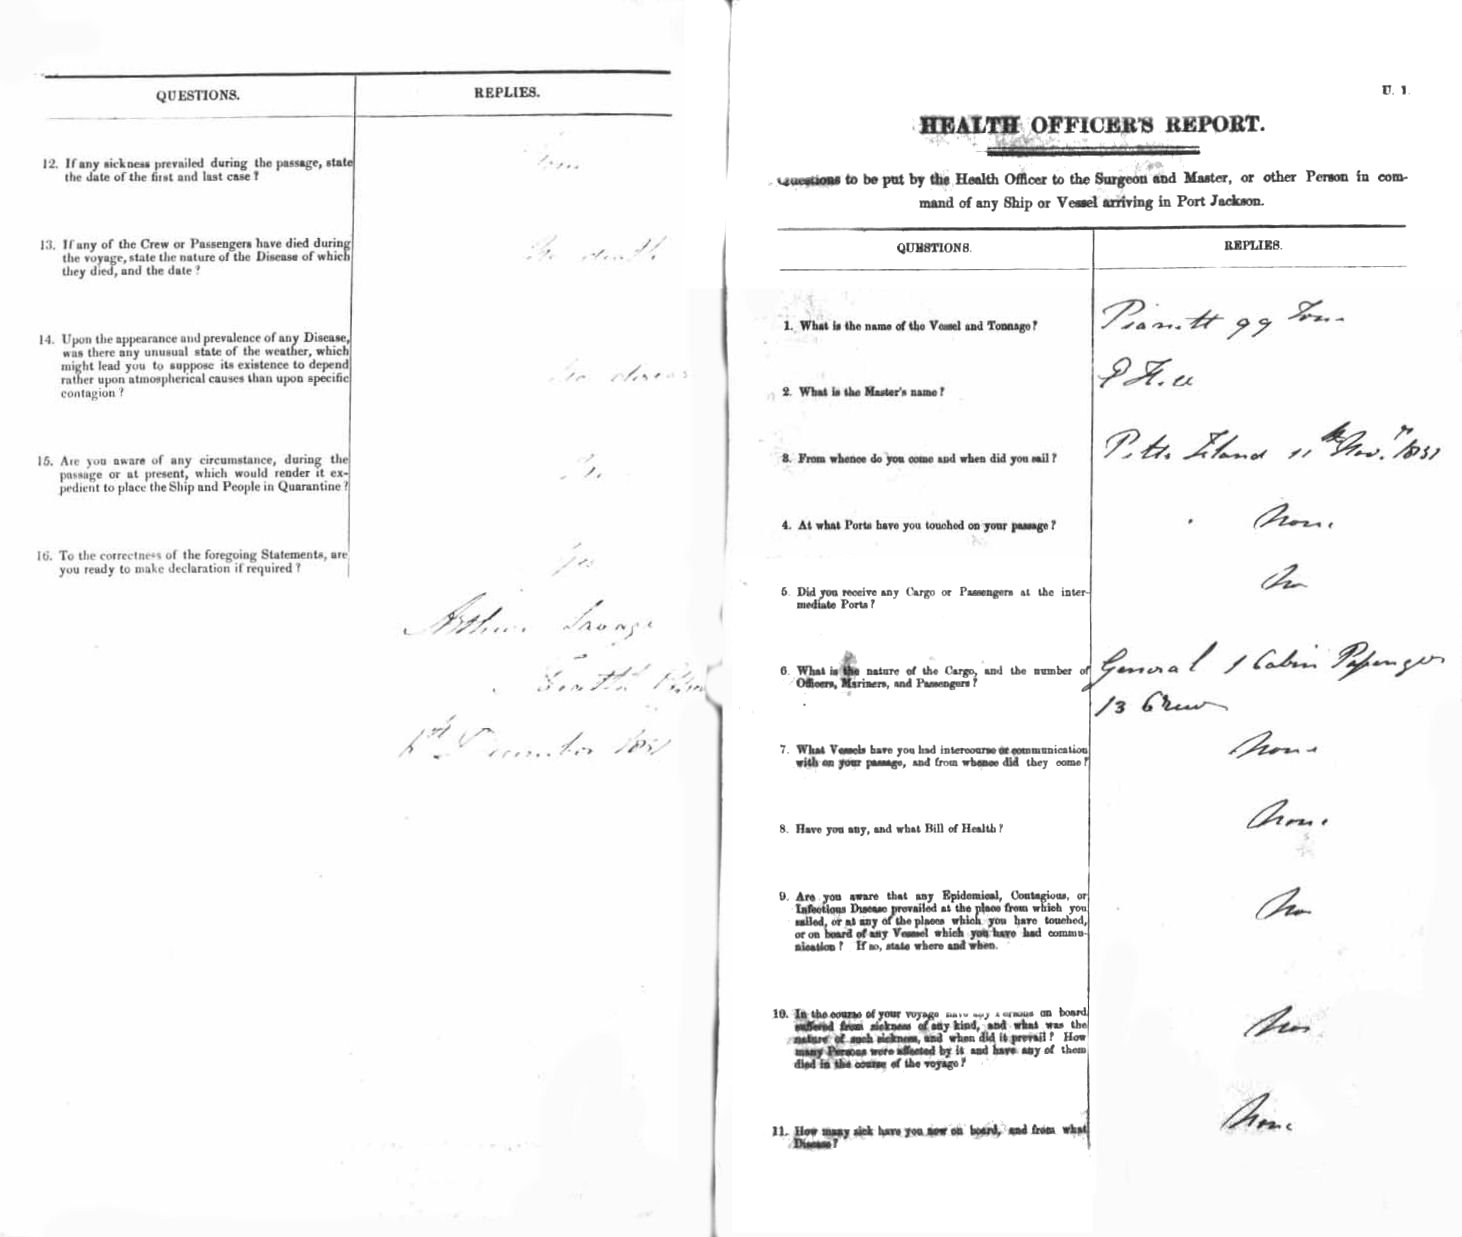 QUESTIONS.
REPLIES.
12. If any sickness prevailed during the passage, state
the date of the first and last case?
13. If any of the Crew or Passengers have died during
the voyage, state the nature of the Disease of which
they died, and the date?
No death
14. Upon the appearance and prevalence of any Disease,
was there any unusual state of the weather, which
might lead you to suppose its existence to depend
rather upon atmospherical causes than upon specific
contagion?
No disease
15. Are you aware of any circumstance, during the
passage or at present, which would render it ex-
pedient to place the Ship and People in Quarantine?
No
16. To the correctness of the foregoing Statements, are
you ready to make declaration if required?
Yes
Arthur Savage
Health
December 1851
U. 1
HEALTH OFFICER'S REPORT.
Questions to be put by the Health Officer to the Surgeon and Master, or other Person in com-
mand of any Ship or Vessel arriving in Port Jackson.
QUESTIONS.
REPLIES.
1. What is the name of the Vessel and Tonnage?
99 Tons
2. What is the Master's name?
3. From whence do you come and when did you sail?
Pitts Island 11th Novr. 1851
4. At what Ports have you touched on your passage?
None
5. Did you receive any Cargo or Passengers at the inter-
mediate Ports?
No
6. What is the nature of the Cargo, and the number of
Officers, Mariners, and Passengers?
General 1 Cabin Passenger
13 Crew
7. What Vessels have you had intercourse or communication
with on your passage, and from whence did they come?
None
8. Have you any, and what Bill of Health?
None
9. Are you aware that any Epidemical, Contagious, or
Infectious Disease prevailed at the place from which you
sailed, or at any of the places which you have touched,
or on board of any Vessel which you have had commu-
nication? If so, state where and when.
No
10. In the course of your voyage have any Persons on board
suffered from sickness of any kind, and what was the
nature of such sickness, and when did it prevail? How
many Persons were affected by it and have any of them
died in the course of the voyage?
11. How many sick have you now on board, and from what
Disease?
None